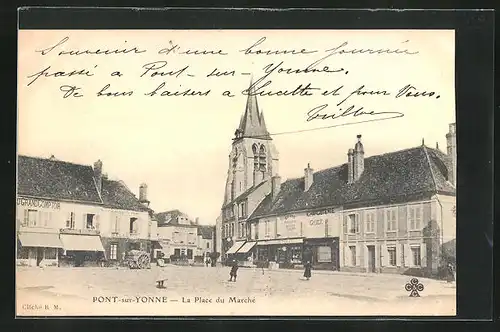 Souvenir d'une bonne journée
passé a Pont-sur-Yonne.
De bons baisers a Lucette et pour Vous.
GRAND COMPTOIR
PONT-SUR-YONNE — La Place du Marché
Cliché B. M.